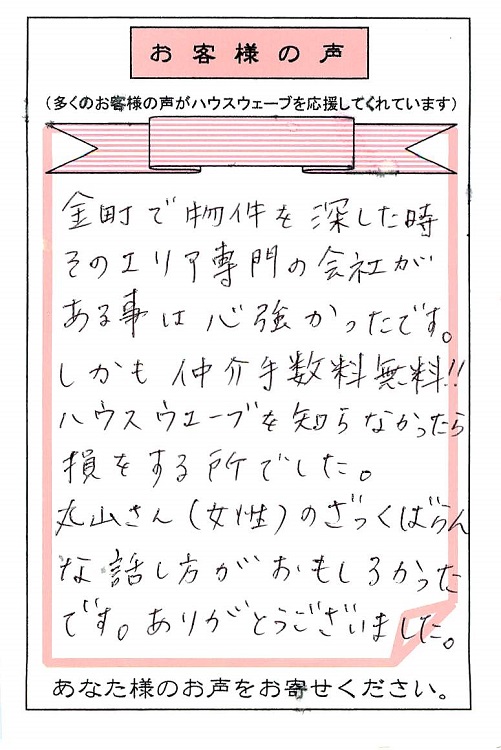 お客様の声
(多くのお客様の声がハウスウェーブを応援してくれています)
金町で物件を深した時
そのエリア専門の会社が
ある事は心強かったです。
しかも仲介手数料無料!!
ハウスウエーブを知らなかったら
損をする所でした。
丸山さん(女性)のざっくばらん
な話し方がおもしろかった
です。ありがとうございました。
あなた様のお声をお寄せください。